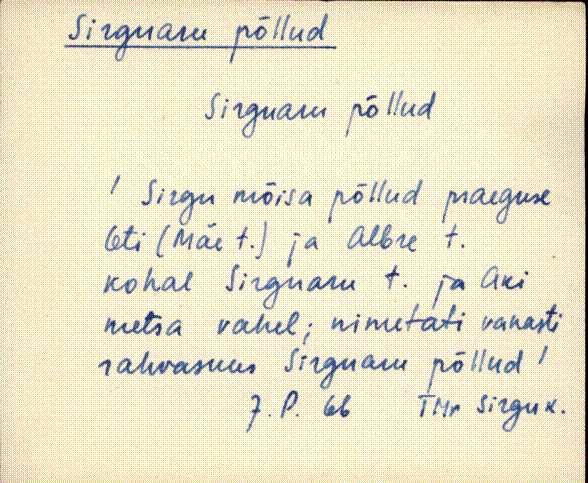 Sirguaru põllud
Sirguaru põllud
' Sirgu mõisa põllud praeguse
Oti (Mäe t.) ja Albre t.
kohal Sirguaru t. ja Aki
metsa vahel; nimetati vanasti
rahvasuus Sirguaru põllud '
J. P. 66 TMr Sirgu k.